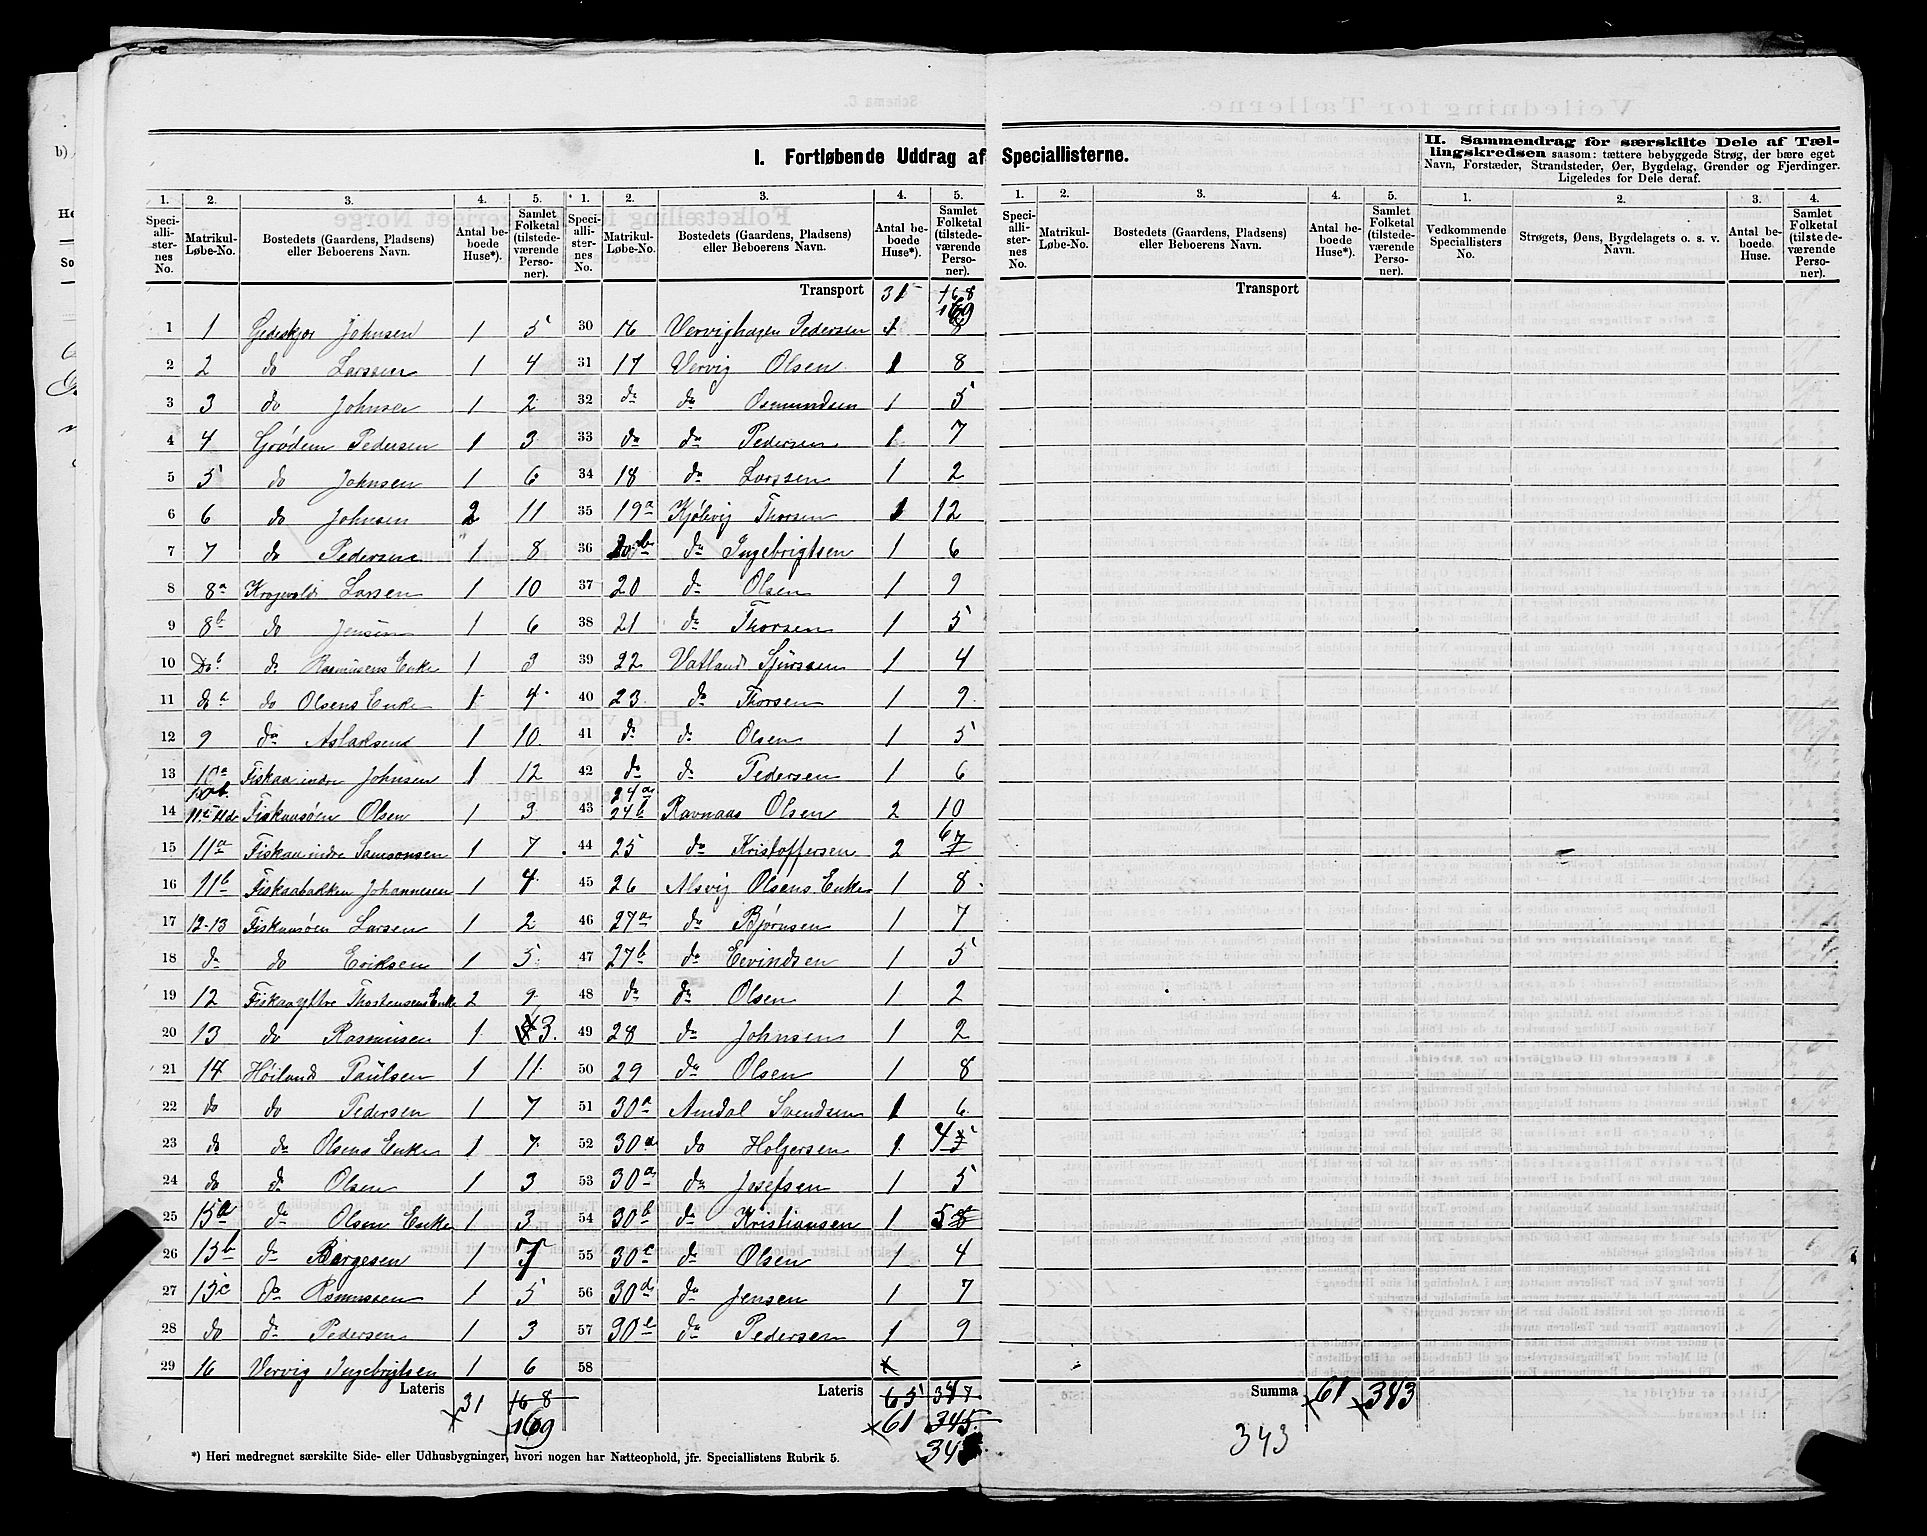 I. Fortløbende Uddrag af Speciallisterne.
II. Sammendrag for særskilte Dele af Tællingskredsen saasom: tættere bebyggede Strøg, der bære eget Navn, Forstæder, Strandsteder, Øer, Bygdelag, Grender og Fjerdinger. Ligeledes for Dele deraf.
1. 2. 3. 4. 5. 1. 2. 3. 4. 5. 1. 2. 3. 4. 5. 1. 2. 3. 4.
Speciallisternes No. Matrikul-Løbe-No. Bostedets (Gaardens, Pladsens) eller Beboerens Navn. Antal beboede Huse*). Samlet Folketal (tilstedeværende Personer).
Speciallisternes No. Matrikul-Løbe-No. Bostedets (Gaardens, Pladsens) eller Beboerens Navn. Antal beboede Huse*). Samlet Folketal (tilstedeværende Personer).
Speciallisternes No. Matrikul-Løbe-No. Bostedets (Gaardens, Pladsens) eller Beboerens Navn. Antal beboede Huse*). Samlet Folketal (tilstedeværende Personer).
Vedkommende Speciallisters No. Strøgets, Øens, Bygdelagets o. s. v. Navn. Antal beboede Huse. Samlet Folketal (tilstedeværende Personer).
1 1 Gjedeskjær Johnsen 1 5
2 2 do Larssen 1 4
3 3 do Johnsen 1 2
4 4 Grødem Pedersen 1 3
5 5 do Johnsen 1 6
6 6 do Johnsen 2 11
7 7 do Pedersen 1 8
8 8a Larsen 1 10
9 8b do Jensen 1 6
10 Do b do Rasmusens Enke 1 3
11 do do Olsens Enke 1 4
12 9 do Aslaksen 1 10
13 10a Fiskaa indre Johnsen 1 12
14 10b Fiskaasøen Olsen 1 3
15 11a Fiskaa indre Samsonsen 1 7
16 11b Fiskaabakken Johannesen 1 4
17 12-13 Fiskaasøen Larsen 1 2
18 do do Eriksen 1 5
19 12 Fiskaa yttre Thorstensens Enke 2 9
20 13 do Rasmusen 1 3
21 14 Høiland Paulsen 1 11
22 do do Pedersen 1 7
23 do do Olsens Enke 1 7
24 do do Olsen 1 3
25 15a do Olsen Enke 1 3
26 15b do Børgesen 1
27 15c do Rasmussen 1 5
28 do do Pedersen 1 3
29 16 Vervig Ingebrigtsen 1 6
Lateris 31 168
169
Transport 31 168
169
30 16 Vervighagen Pedersen 1
31 17 Vervig Olsen 1 8
32 do do Osmundsen 1 5
33 do do Pedersen 1 7
34 18 do Larssen 1 2
35 19a Kjølevig Thorsen 1 12
36 do Ingebrigtsen 1 6
37 20 do Olsen 1 9
38 21 do Thorsen 1 5
39 22 Vatland Sjurssen 1 4
40 23 do Thorsen 1 9
41 do do Olsen 1 5
42 do do Pedersen 1 6
43 24a 24b Ravnaas Olsen 2 10
44 25 do Kristoffersen 2 6 7
45 26 Alsvig Olsens Enke 1 8
46 27a do Bjørnsen 1 7
47 27b do Eevindsen 1 5
48 do do Olsen 1 2
49 28 do Johnsen 1 2
50 29 do Olsen 1 8
51 30a Amdal Svendsen 1 6
52 30a do Holgersen 1 4 5
53 30a do Josefsen 1 5
54 30b do Kristiansen 1 5
55 30c do Olsen 1 4
56 30d do Jensen 1 7
57 30e do Pedersen 1 9
58
Lateris 65 347
61 345
343
Transport
Summa 61 343
343
*) Heri medregnet særskilte Side- eller Udhusbygninger, hvori nogen har Natteophold, jfr. Speciallistens Rubrik 5.